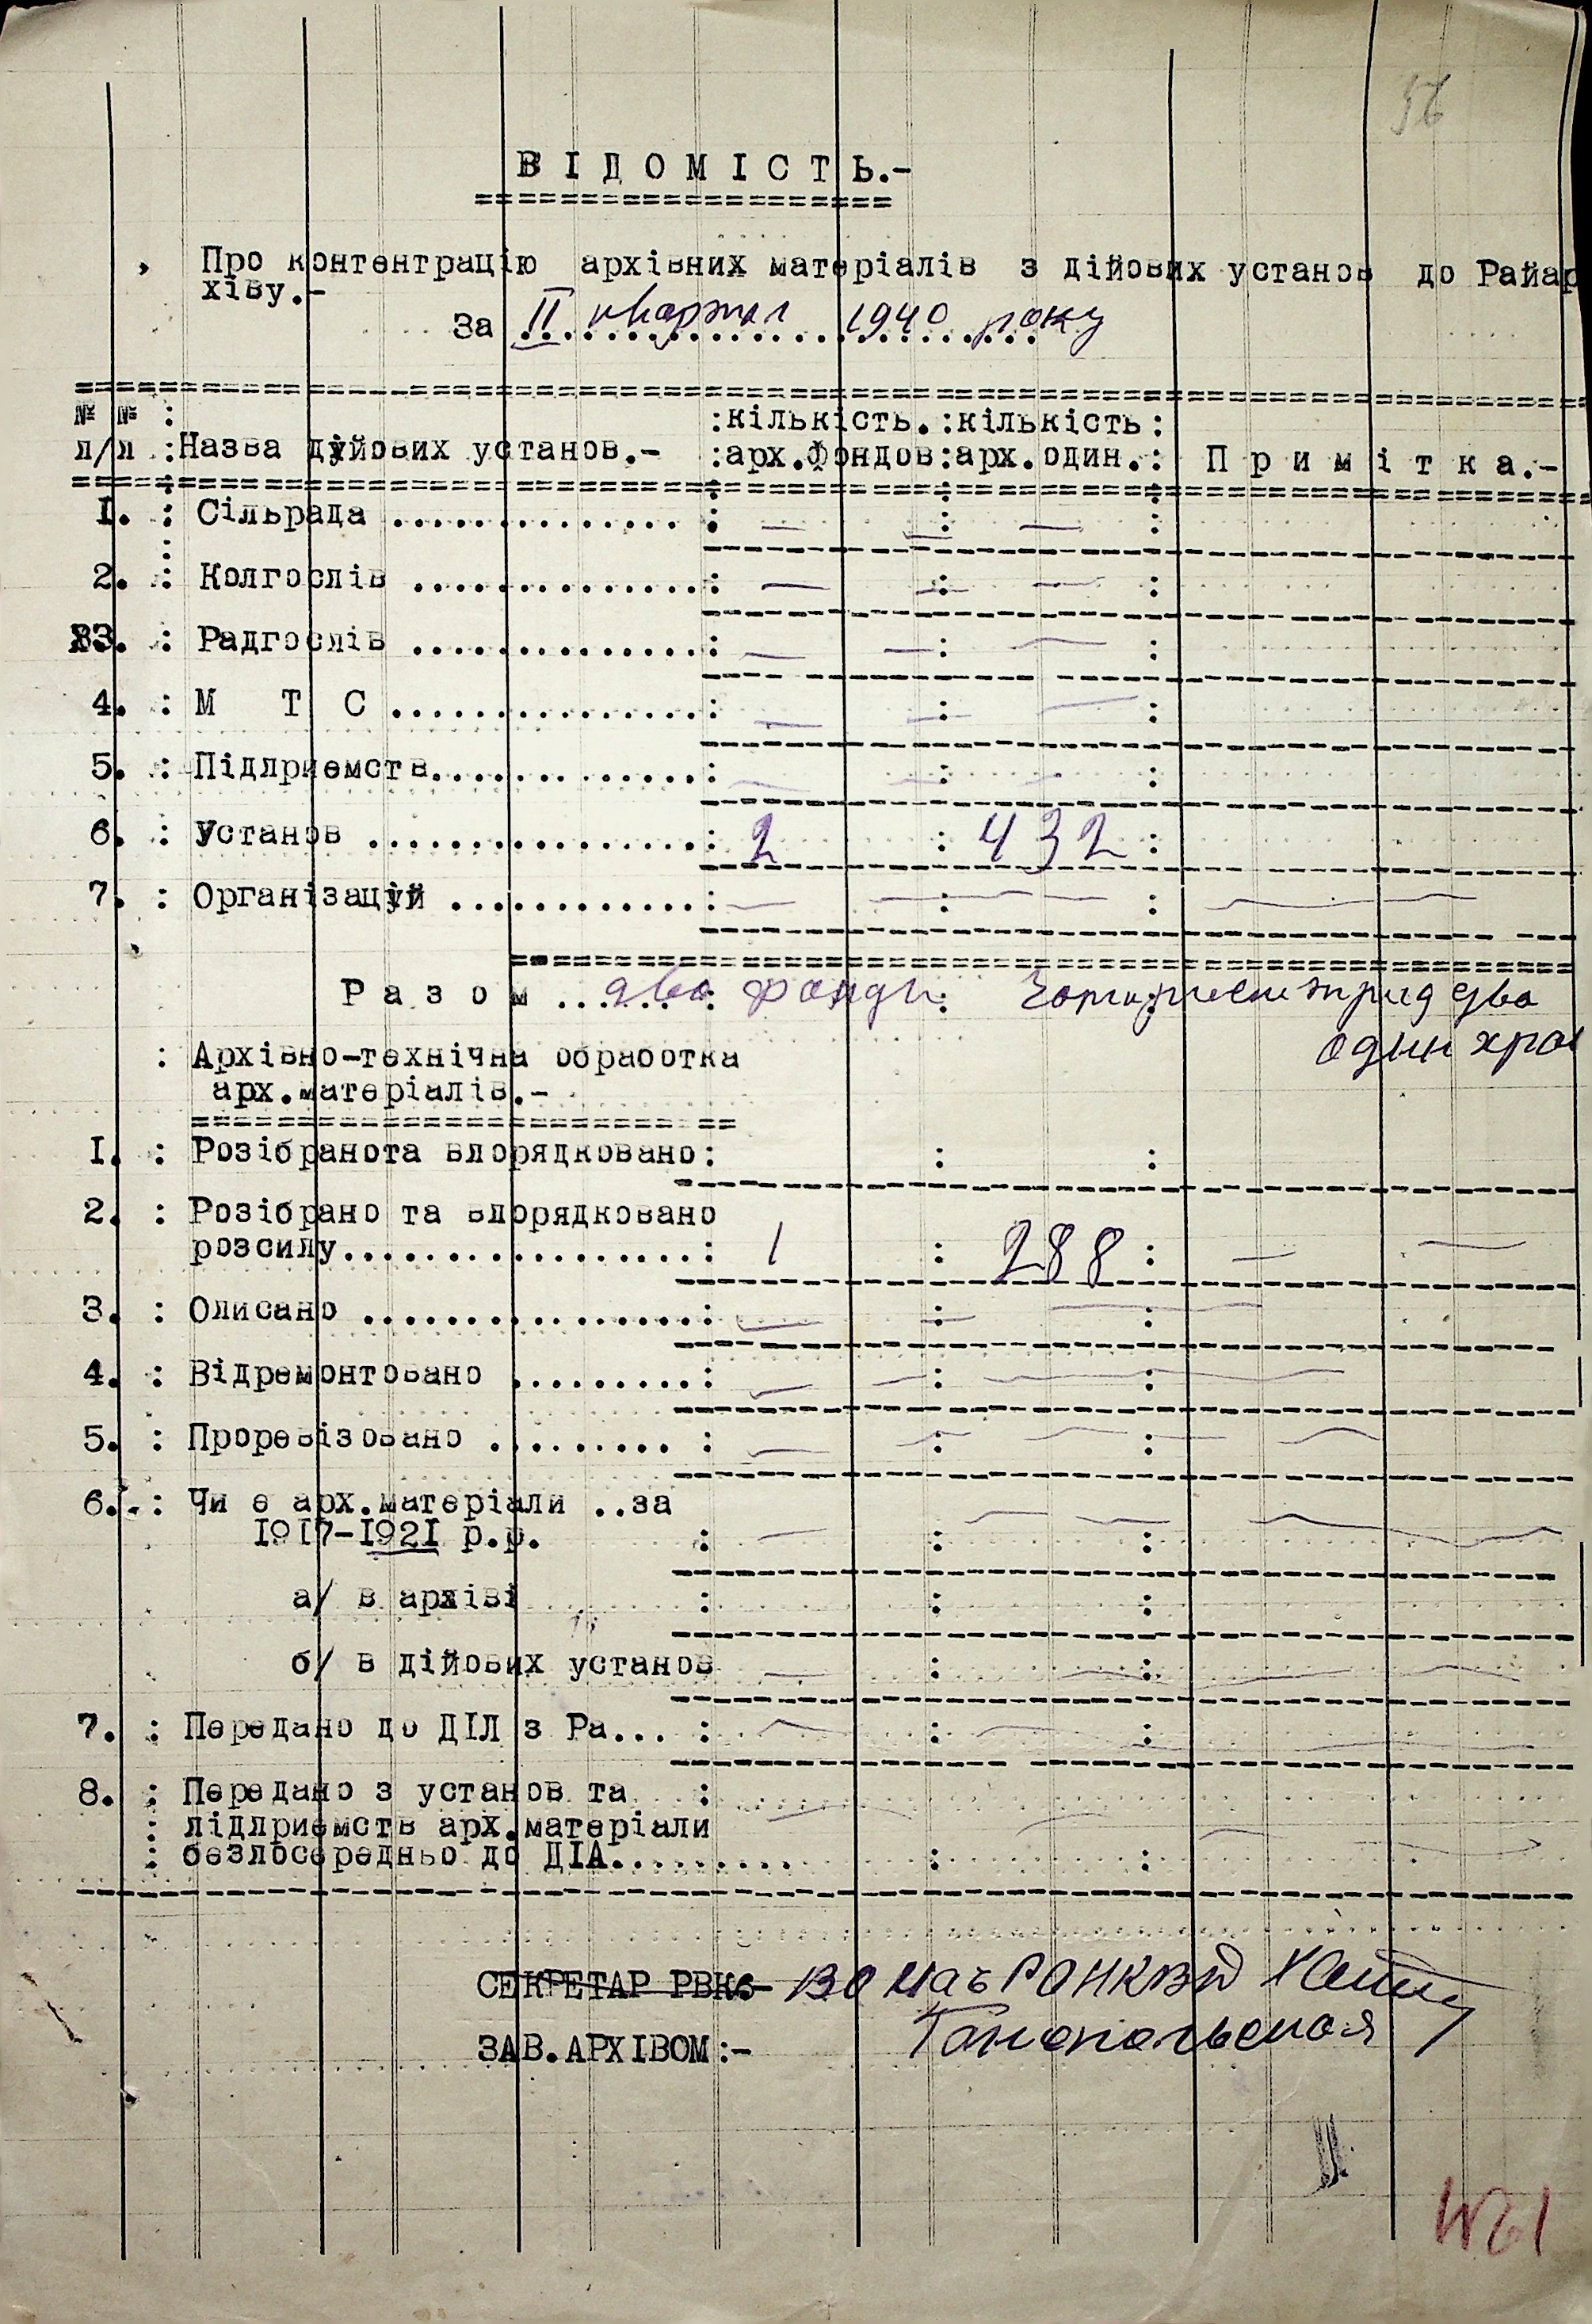 56
ВІДОМІСТЬ.-
Про контентрацію архівних матеріалів з дійових установ до Райар
хіву.-
За II квартал 1940 року
№ № : :кількість.:кількість:
п/п :Назва дійових установ.- :арх.фондов:арх.один.: Примітка.-
1. : Сільрада .............. : — : — :
2. : Колгоспів ..............: — : — :
3. : Радгоспів ..............: — : — :
4. : М Т С ...............: — : — :
5. : Підприємств.............: — : — :
6. : Установ ................: 2 : 432 :
7. : Організацій ............: — : — :
Разом ...... два фонди: Чотириста трид два
один хран
: Архівно-технічна обработка
арх.матеріалів.-
1. : Розібранота впорядковано: : :
2. : Розібрано та впорядковано
розсипу..................: 1 : 288 : — —
3. : Описано .................: — : — :
4. : Відремонтовано .........: — : — :
5. : Проревізовано ......... : — : — :
6. : Чи є арх.матеріали ..за
1917-1921 р.р. : — : — :
а/ в архіві : : :
б/ в дійових установ — : — :
7. : Передано до ДІЛ з Ра... : — : — :
8. : Передано з установ та :
: підприємств арх.матеріали
: безпосередньо до ДІА......... : :
СЕКРЕТАР РВК:- ВО нач РОНКВД
ЗАВ.АРХІВОМ:-